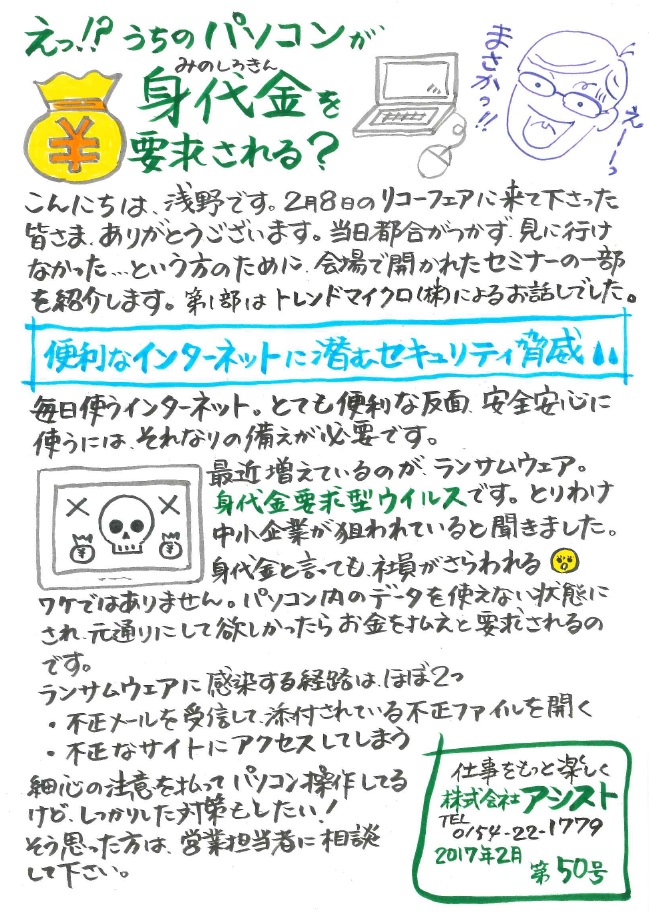 えっ!? うちのパソコンが
みのしろきん
身代金を
要求される?
まさかっ!!
えーーっ
こんにちは、浅野です。2月8日のリコーフェアに来て下さった
皆さま、ありがとうございます。当日都合がつかず、見に行け
なかった…という方のために、会場で開かれたセミナーの一部
を紹介します。第1部はトレンドマイクロ(株)によるお話しでした。
便利なインターネットに潜むセキュリティ脅威
毎日使うインターネット。とても便利な反面、安全安心に
使うには、それなりの備えが必要です。
最近増えているのが、ランサムウェア。
身代金要求型ウイルスです。とりわけ
中小企業が狙われていると聞きました。
身代金と言っても、社員がさらわれる
ワケではありません。パソコン内のデータを使えない状態に
され、元通りにして欲しかったらお金を払えと要求されるの
です。
ランサムウェアに感染する経路は、ほぼ2つ
・不正メールを受信して、添付されている不正ファイルを開く
・不正なサイトにアクセスしてしまう
細心の注意を払ってパソコン操作してる
けど、しっかりした対策もしたい!
そう思った方は、営業担当者に相談
して下さい。
仕事をもっと楽しく
株式会社アシスト
TEL
0154-22-1779
2017年2月
第50号
¥
¥
¥